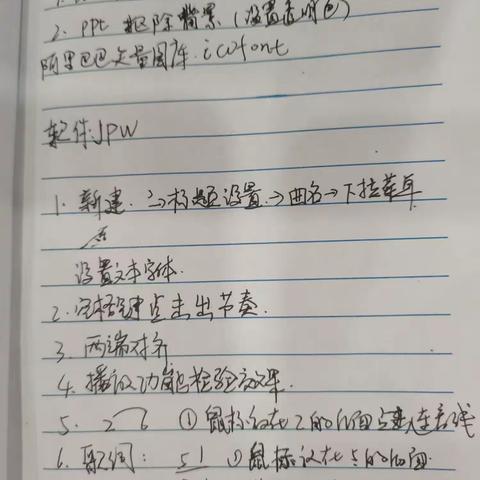 2. ppt 抠除背景(设置透明色)
阿里巴巴矢量图库. iconfont
软件JPW
1. 新建. →标题设置→曲名→下拉菜单
设置文本字体.
2. 空格键点击出节奏.
3. 两端对齐
4. 播放功能检验效果.
5. 2 6 ①鼠标放在2的后面点连音线
6. 歌词: 51 ①鼠标放在5的后面